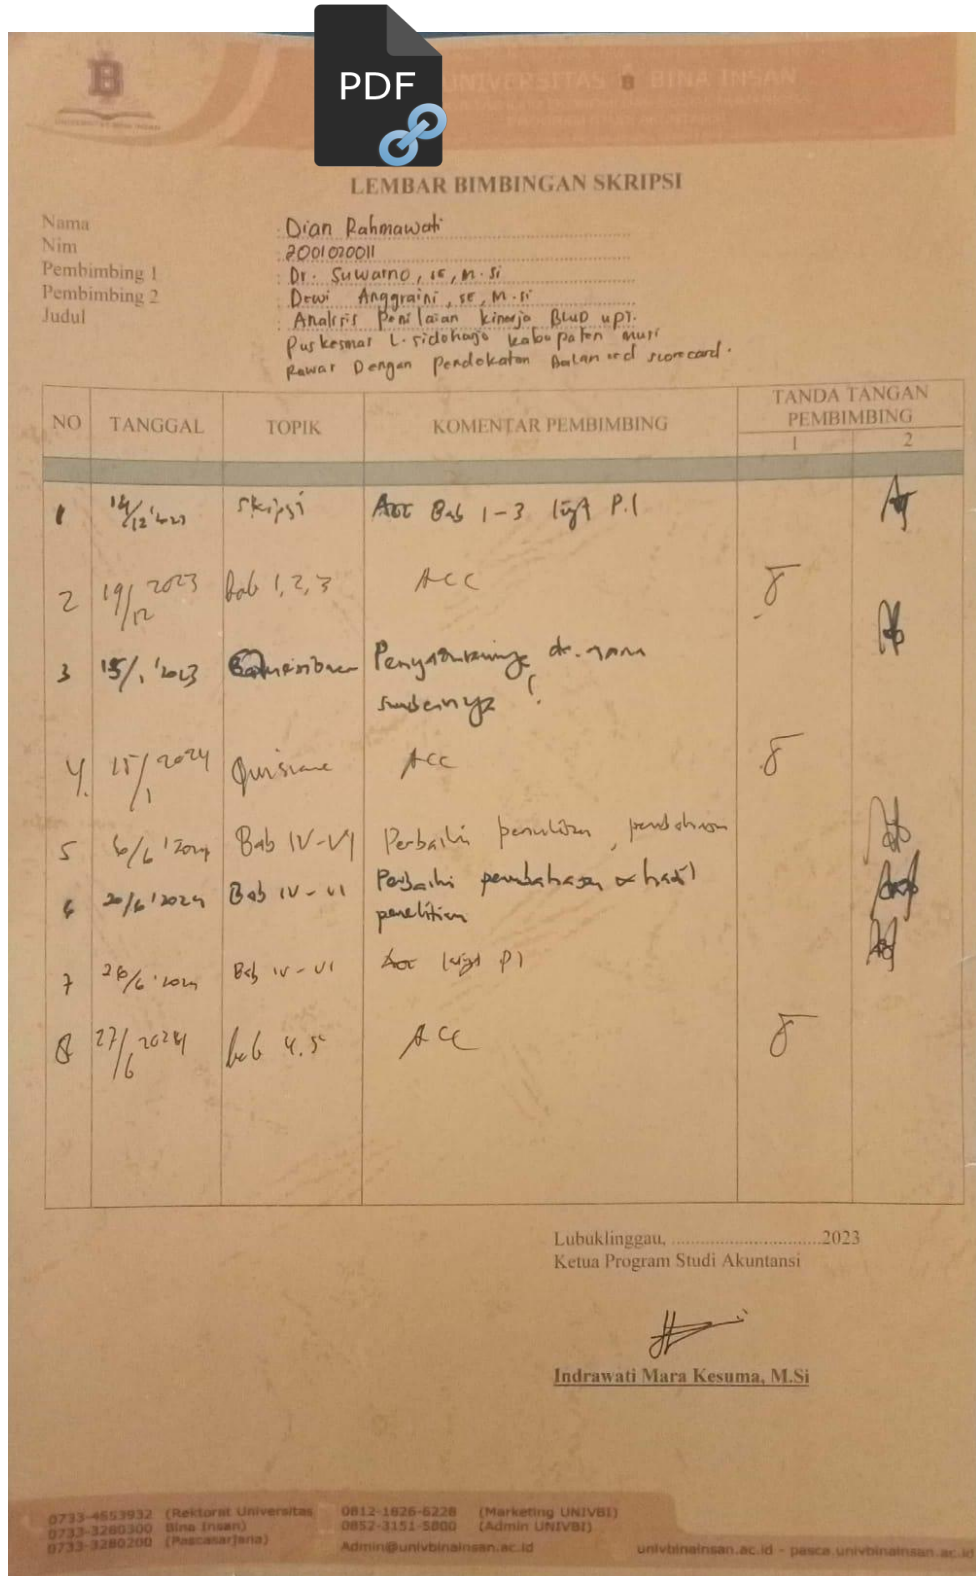 PDF
UNIVERSITAS BINA INSAN
LEMBAR BIMBINGAN SKRIPSI
Nama : Dian Rahmawati
Nim : 2001020011
Pembimbing 1 : Dr. Suwarno, SE, M.Si
Pembimbing 2 : Dewi Anggraini, SE, M.Si
Judul : Analisis Penilaian kinerja BLUD UPT.
Puskesmas L. Sidoharjo kabupaten musi
Rawas Dengan Pendekatan Balanced scorecard.
NO TANGGAL TOPIK KOMENTAR PEMBIMBING TANDA TANGAN PEMBIMBING
1 2
1 14/12'2023 Skripsi Acc Bab 1-3 P.1
2 19/12 2023 bab 1, 2, 3 ACC
3 15/1 '2023 sumbernya ?
4. 15/1 2024 Quisione ACC
5 6/6 '2024 Bab IV-VI Perbaiki penulisan, pembahasan
6 20/6 '2024 Bab IV-VI Perbaiki pembahasan & hasil
penelitian
7 26/6 '2024 Bab IV-VI Acc P1
8 27/6 2024 bab 4.5 ACC
Lubuklinggau, ..............................2023
Ketua Program Studi Akuntansi
Indrawati Mara Kesuma, M.Si
0733-4553932 (Rektorat Universitas 0812-1826-6228 (Marketing UNIVBI)
0733-3280300 Bina Insan) 0852-3151-5800 (Admin UNIVBI)
0733-3280200 (Pascasarjana) Admin@univbinainsan.ac.id univbinainsan.ac.id - pasca.univbinainsan.ac.id